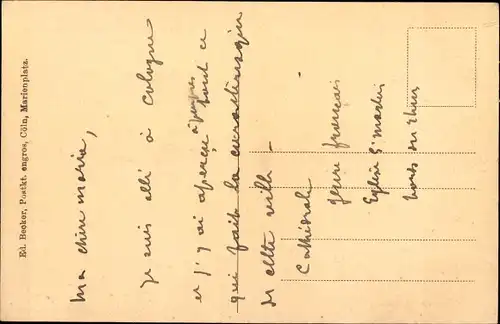 Ma chère marie,
je suis allé à Cologne
et j'y ai aperçu à peu près tout ce
qui fait la caractéristique
de cette ville —
Cathédrale
français
Eglise St martin
bords du rhin
Ed. Becker, Postkt. engros, Cöln, Marienplatz.